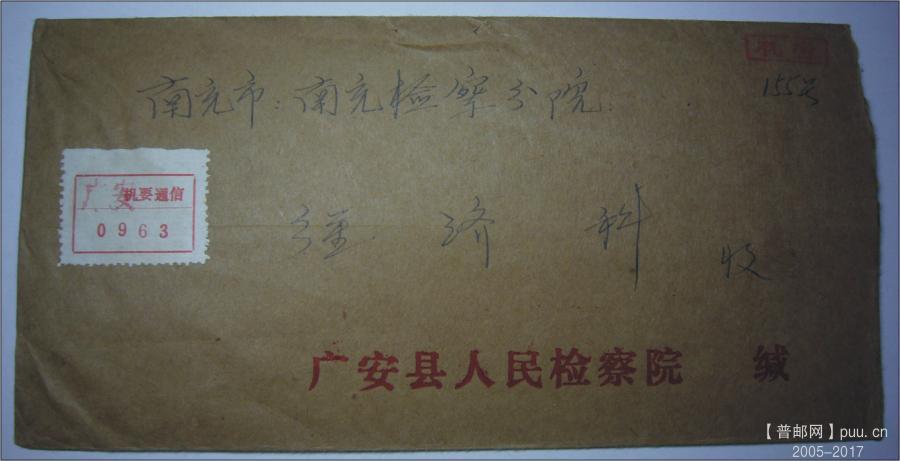 机密
155号
南充市:南充检察分院
广安机要通信
0963
经济科
收
广安县人民检察院 缄
【普邮网】puu.cn
2005-2017